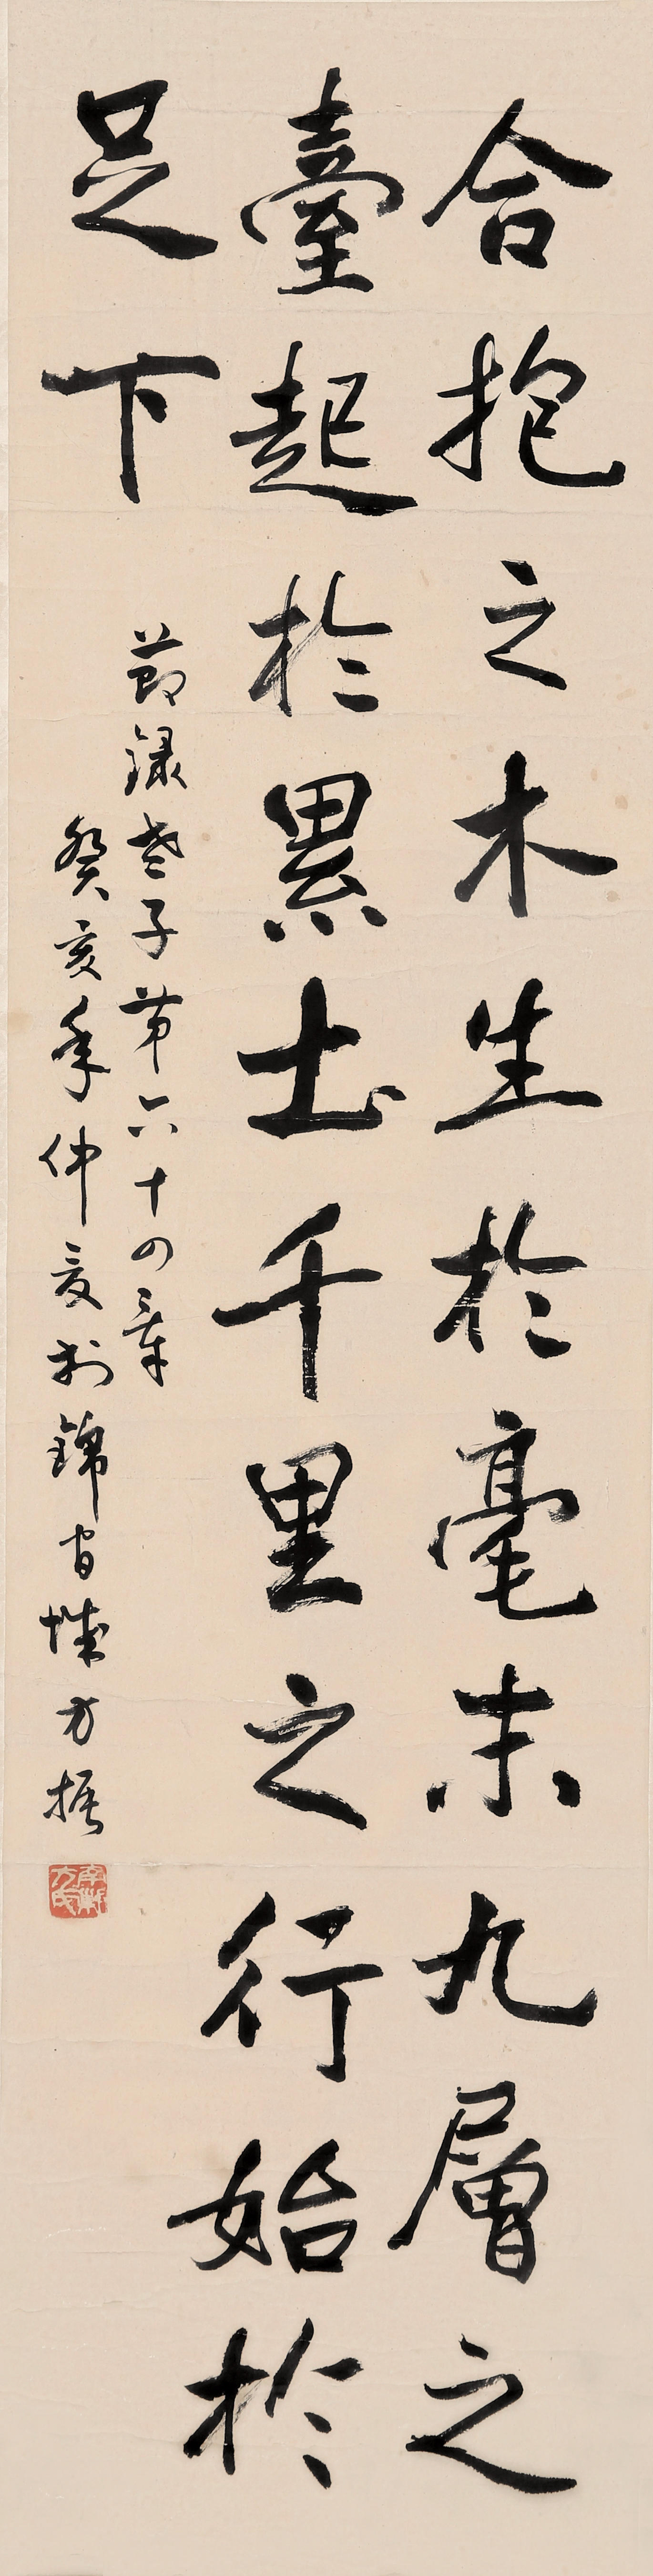 合抱之木生於毫末九層之
臺起於累土千里之行始於
足下
節錄老子第六十四章
癸亥年仲夏於錦官城方振